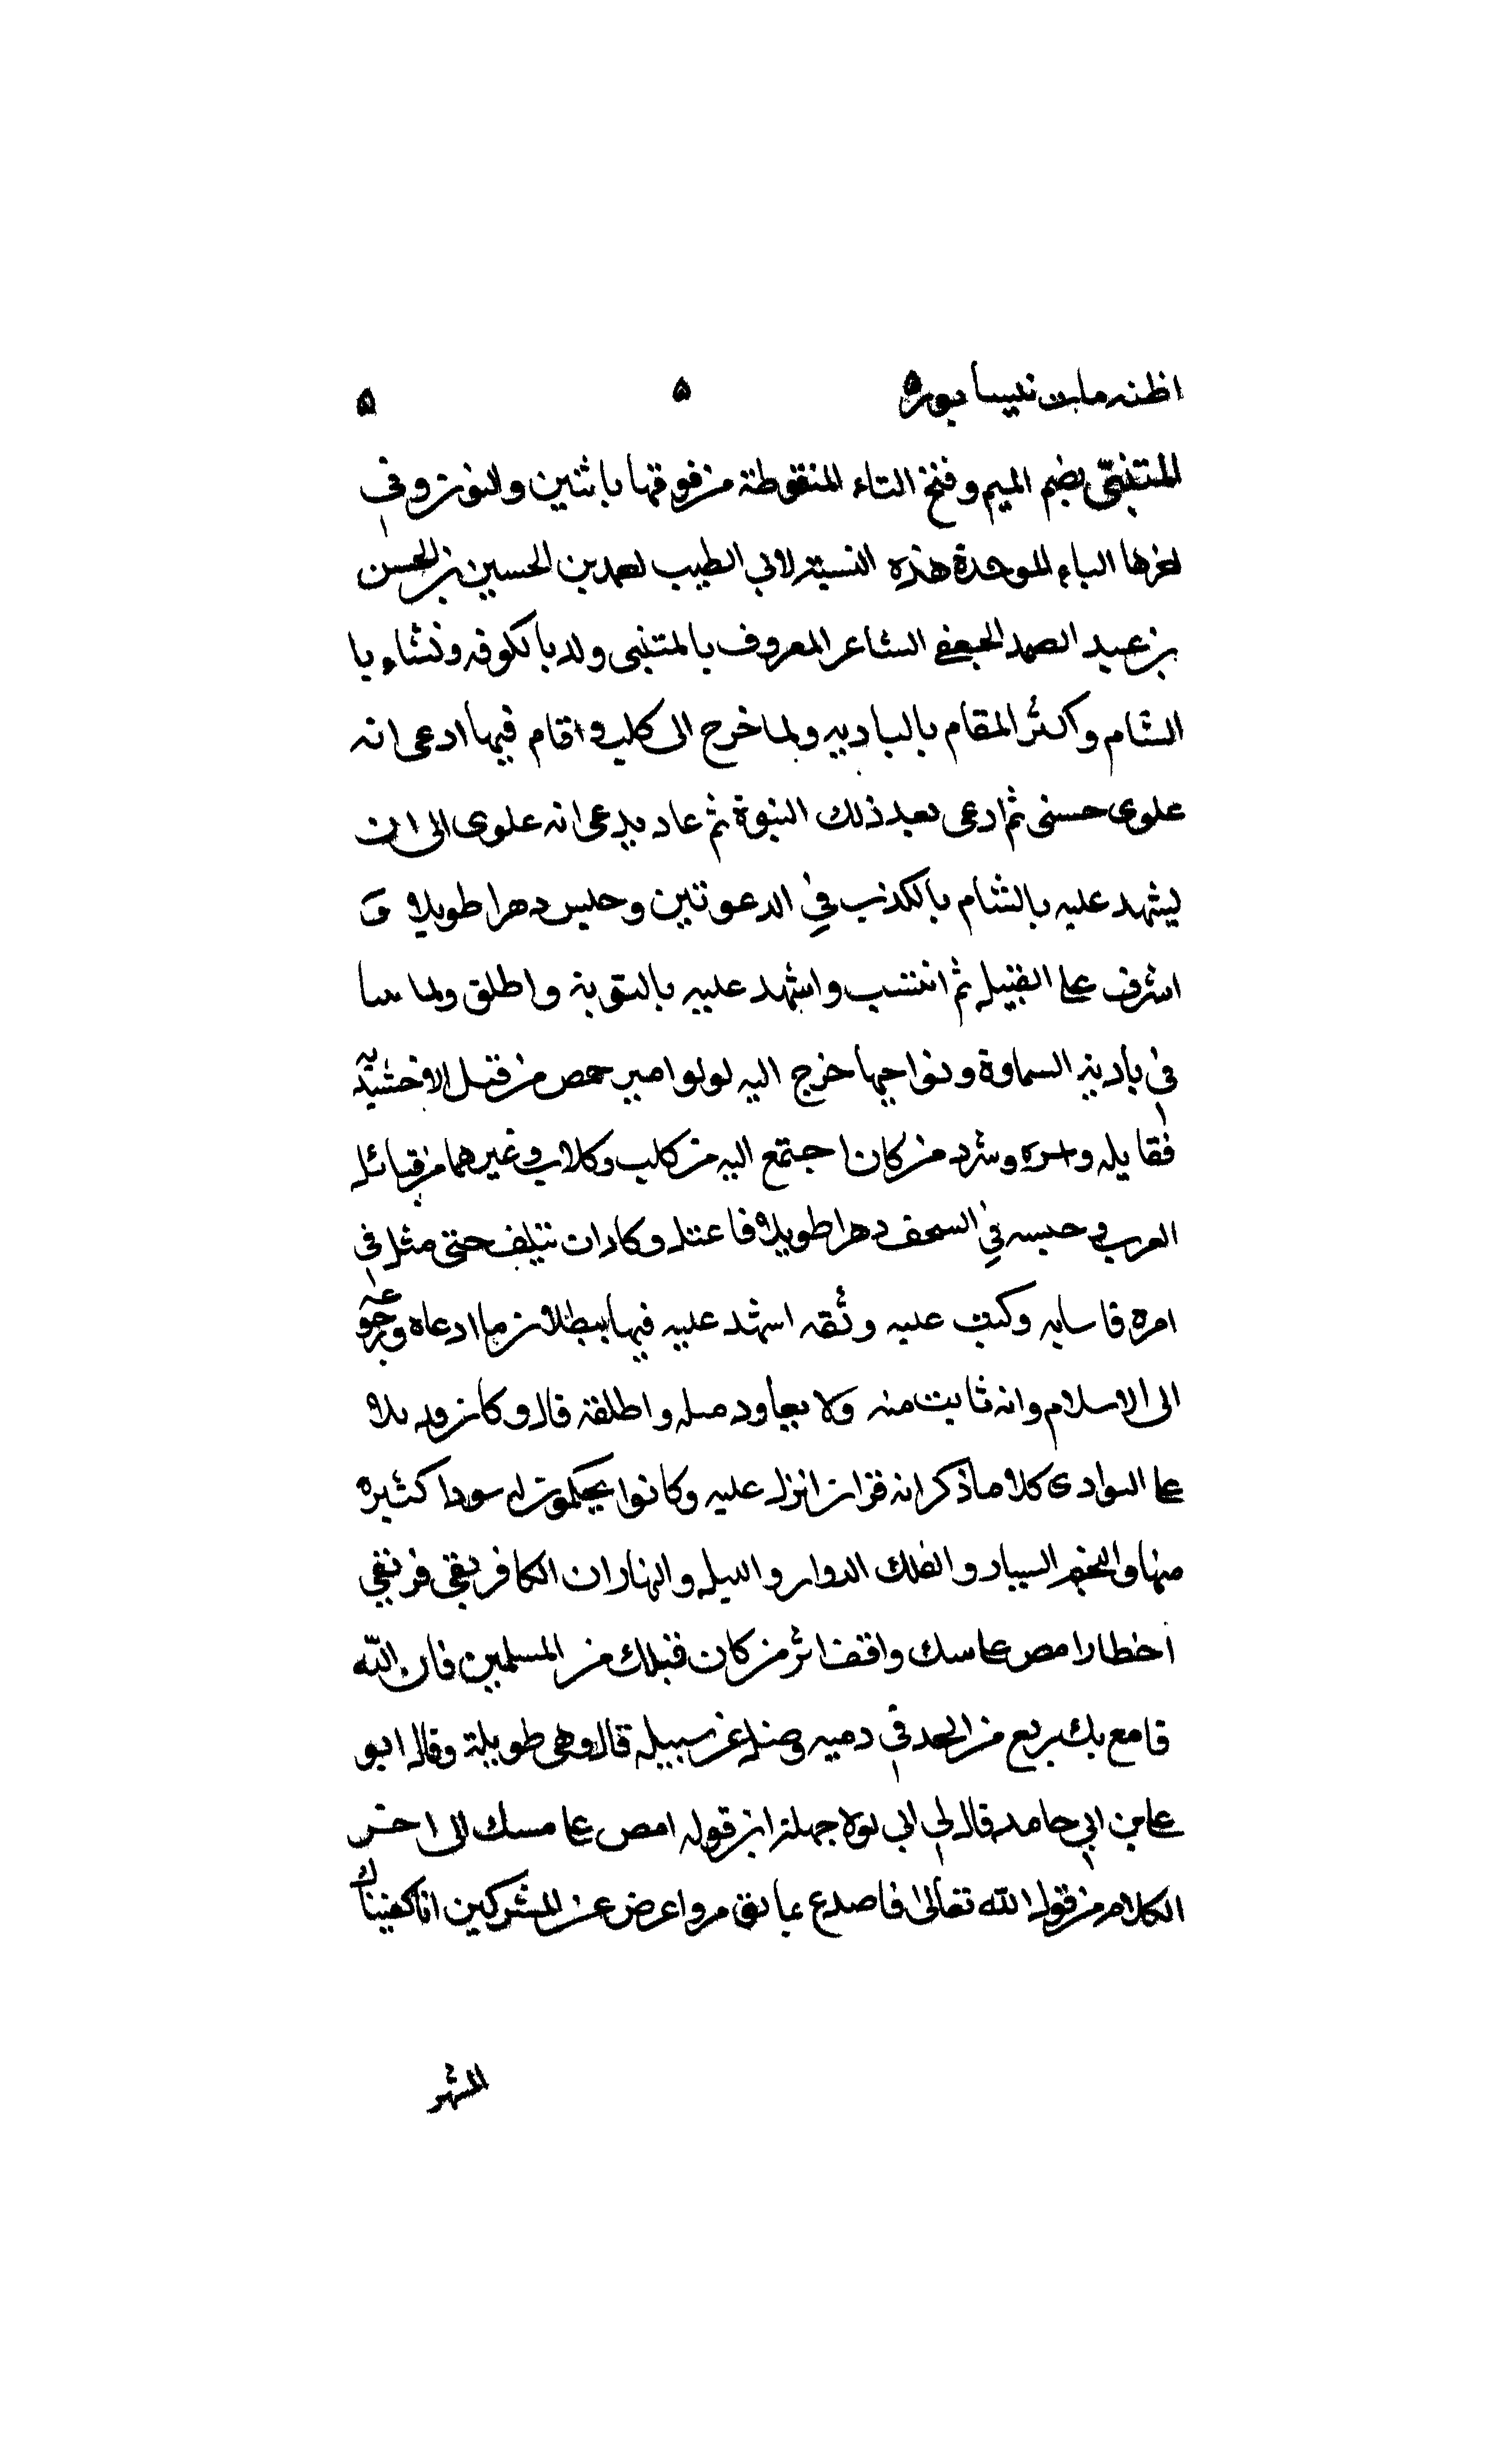 اظنه مات نيسابوره ه ه
المتنبّي بضم الميم وفتح التاء المنقوطة من فوقها باثنين والنون وفي
اخرها الباء الموحدة هذه النسبة لابي الطيب احمد بن الحسين بن الحسن
بن عبد الصمد الجعفي الشاعر المعروف بالمتنبي ولد بالكوفه ونشاء با
الشام واكثر المقام بالباديه ولما خرج الى كلب واقام فيها ادعى انه
علوى حسنى ثم ادعى بعد ذلك النبوة ثم عاد يدعى انه علوى الى ان
يشهد عليه بالشام بالكذب في الدعوتين وحبس دهرا طويلا و
اشرف على القتيل ثم استتيب واشهد عليه بالتوبة واطلق ولما
في بادية السماوة ونواحيها خرج اليه لولو امير حمص من قبل الاخشيديه
فقابله واسره وشرد من كان اجتمع اليه من كلب وكلاب وغيرهما من قبائل
العرب وحبسه في السجن دهرا طويلا فاعتل وكاد ان يتلف حتى مثل في
امره فاستابه وكتب عليه وثقه اشهد عليه فيها ببطلان ما ادعاه ورجوعه
الى الاسلام وانه ثابت منه ولا يعاود مثله واطلقه قال وكان قد تلا
على البوادى كلاما ذكر انه قران انزل عليه وكانوا يحكمون له سورا كثيره
منها والنجم السيار والفلك الدوار والليل والنهار ان الكافر يقى فرنقي
اخطار امص عاسك واقف اثر من كان قبلك من المسلمين فان الله
قامع بك بربع من الحد في دميه وضل عن سبيله قال وهى طويلة وقال ابو
على بن ابي حامد قال لي ابي لولا جهله ابن قوله امص على مسك الى اخر
الكلام من قول الله تعالى فاصدع بما تؤمر واعرض عن المشركين انا كفيناك
المشهر